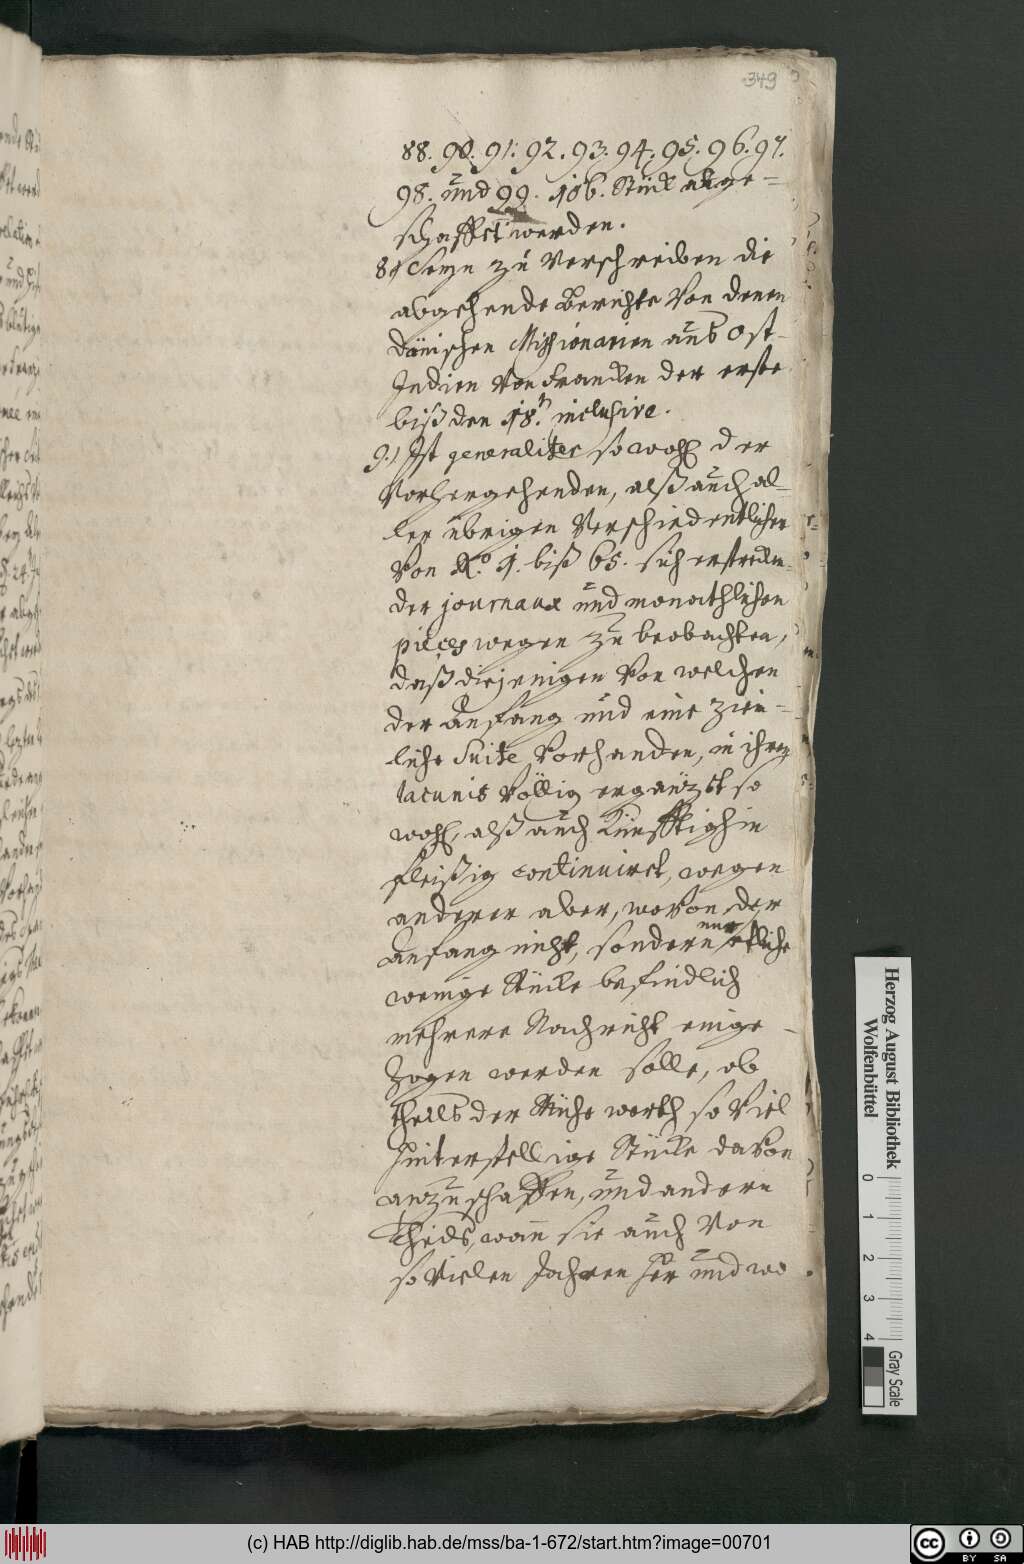 349
88. 90. 91. 92. 93. 94. 95. 96. 97.
98. und 99. 106. Stück abge=
schaffet werden.
8.) Seyn zu verschreiben die
abgehende Berichte von denen
Dänischen Missionarien aus Ost-
Indien von Francken der erste
biß den 18.n inclusive.
9.) Ist generaliter sowohl der
vorhergehenden, alß auch al-
ler übrigen verschiedentlichen
von No. 1. biß 65. sich erstrecken-
der journaux und monathlichen
pieces wegen zu beobachten,
daß diejenigen von welchen
der Anfang und eine ziem=
liche Suite vorhanden, in ihren
lacunis völlig ergäntzet so
wohl, alß auch künfftighin
fleißig continuiret, wegen
anderer aber, wovon der
Anfang nicht, sondern nur etliche
wenige Stücke befindlich
mehrere Nachricht einge-
zogen werden solle, ob
theils der Mühe werth so viel
hinterstellige Stücke davon
anzuschaffen, und andern
Theils, wann sie auch von
so vielen Jahren her und wo
Herzog August Bibliothek
Wolfenbüttel
0 1 2 3 4
Gray Scale
(c) HAB http://diglib.hab.de/mss/ba-1-672/start.htm?image=00701
cc BY SA